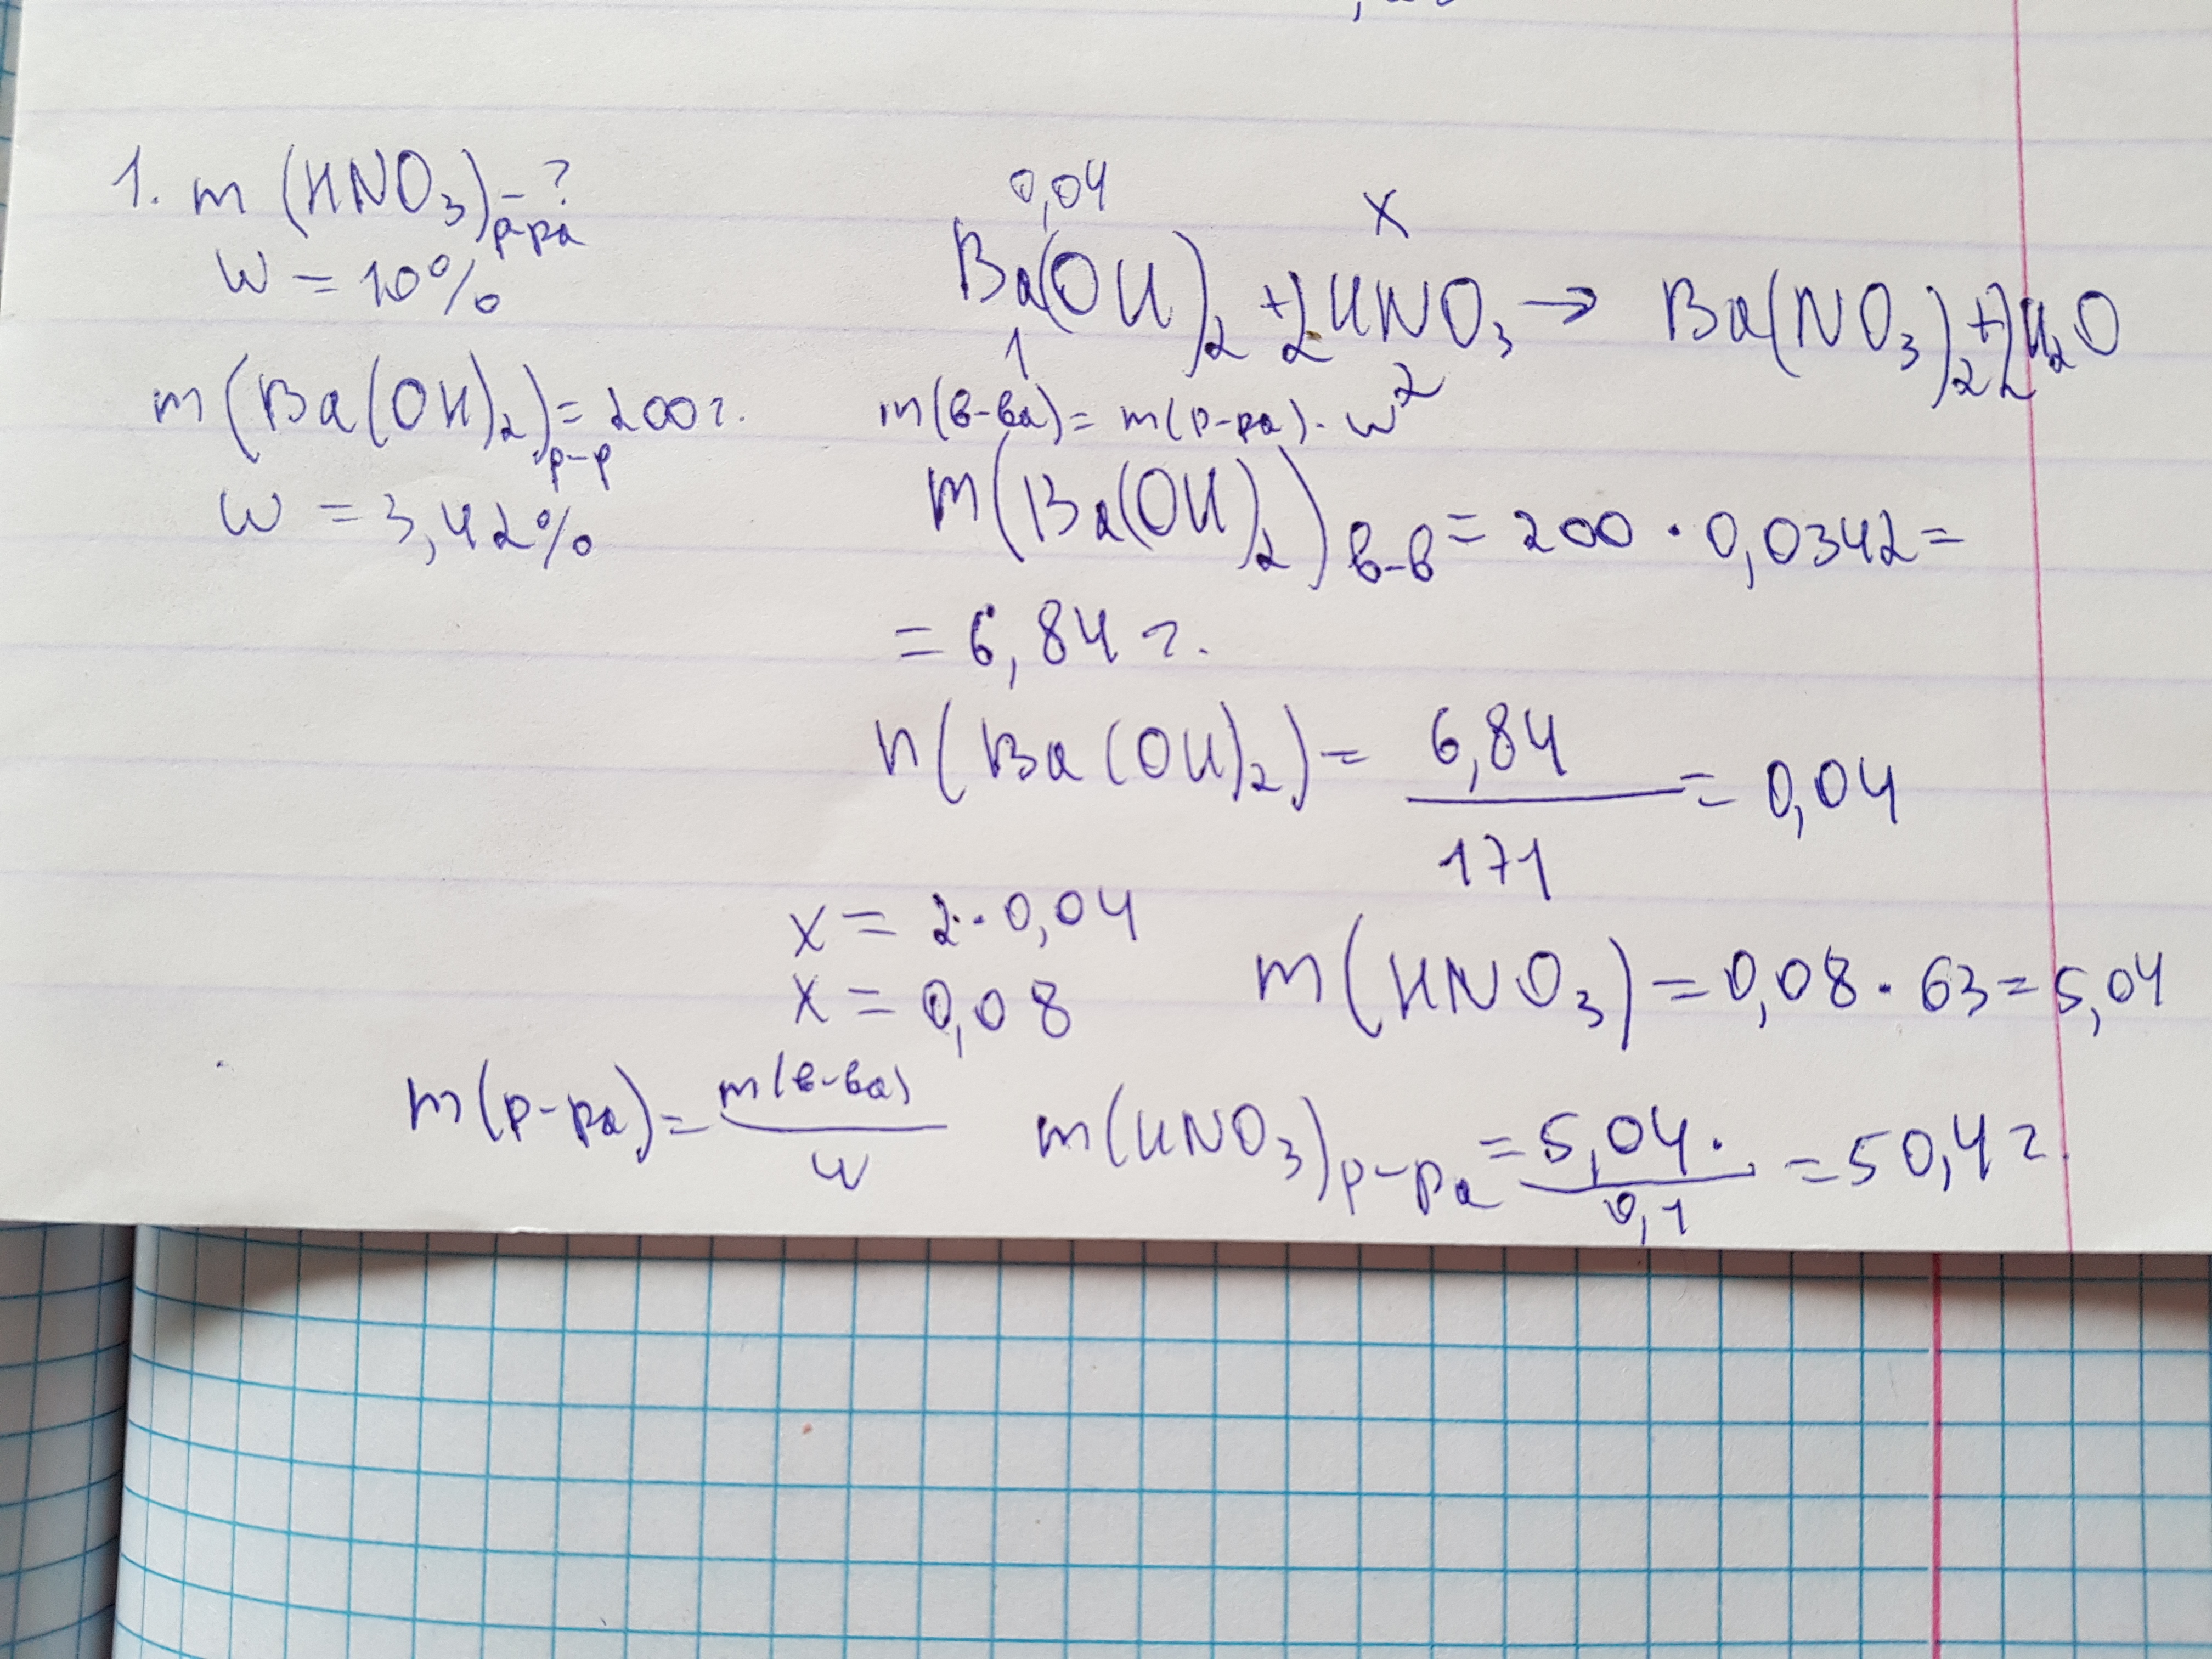 1. m (HNO₃)р-ра - ?
w = 10%
m (Ba(OH)₂)р-р = 200г.
w = 3,42%
0,04 x
Ba(OH)₂ + 2HNO₃ → Ba(NO₃)₂ + 2H₂O
1 2
m(в-ва) = m(р-ра) · w
m(Ba(OH)₂)в-в = 200 · 0,0342 =
= 6,84 г.
n(Ba(OH)₂) = 6,84 / 171 = 0,04
x = 2 · 0,04
x = 0,08
m(HNO₃) = 0,08 · 63 = 5,04
m(р-ра) = m(в-ва) / w
m(HNO₃)р-ра = 5,04 / 0,1 = 50,4 г.